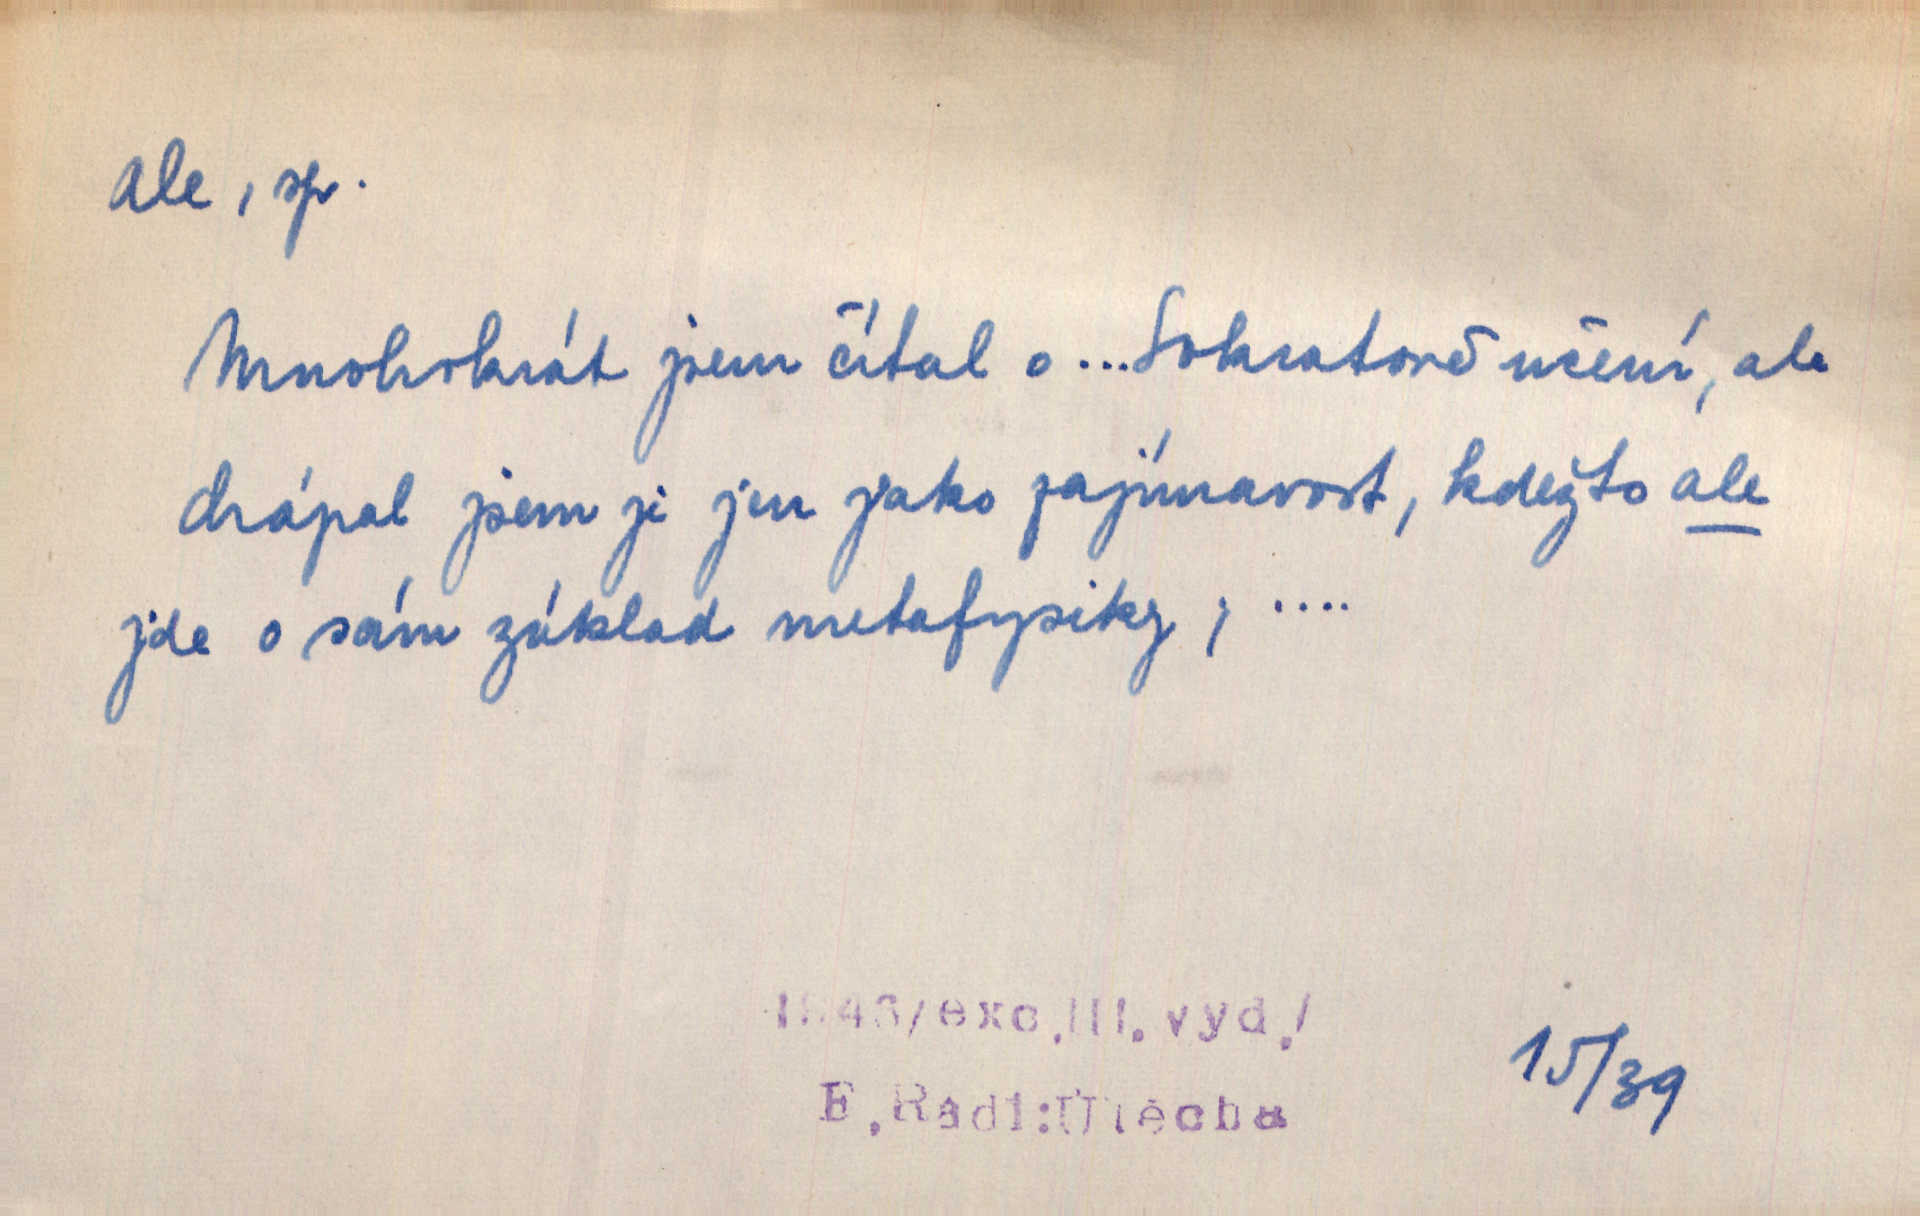 ale, sp.
Mnohokrát jsem čítal o ... Sokratově učení, ale
drápal jsem ji jen jako zajímavost, kdežto ale
jde o sám základ metafysiky ; ....
1946/exc.III.vyd./
E.Rádl:Útěcha
15/39